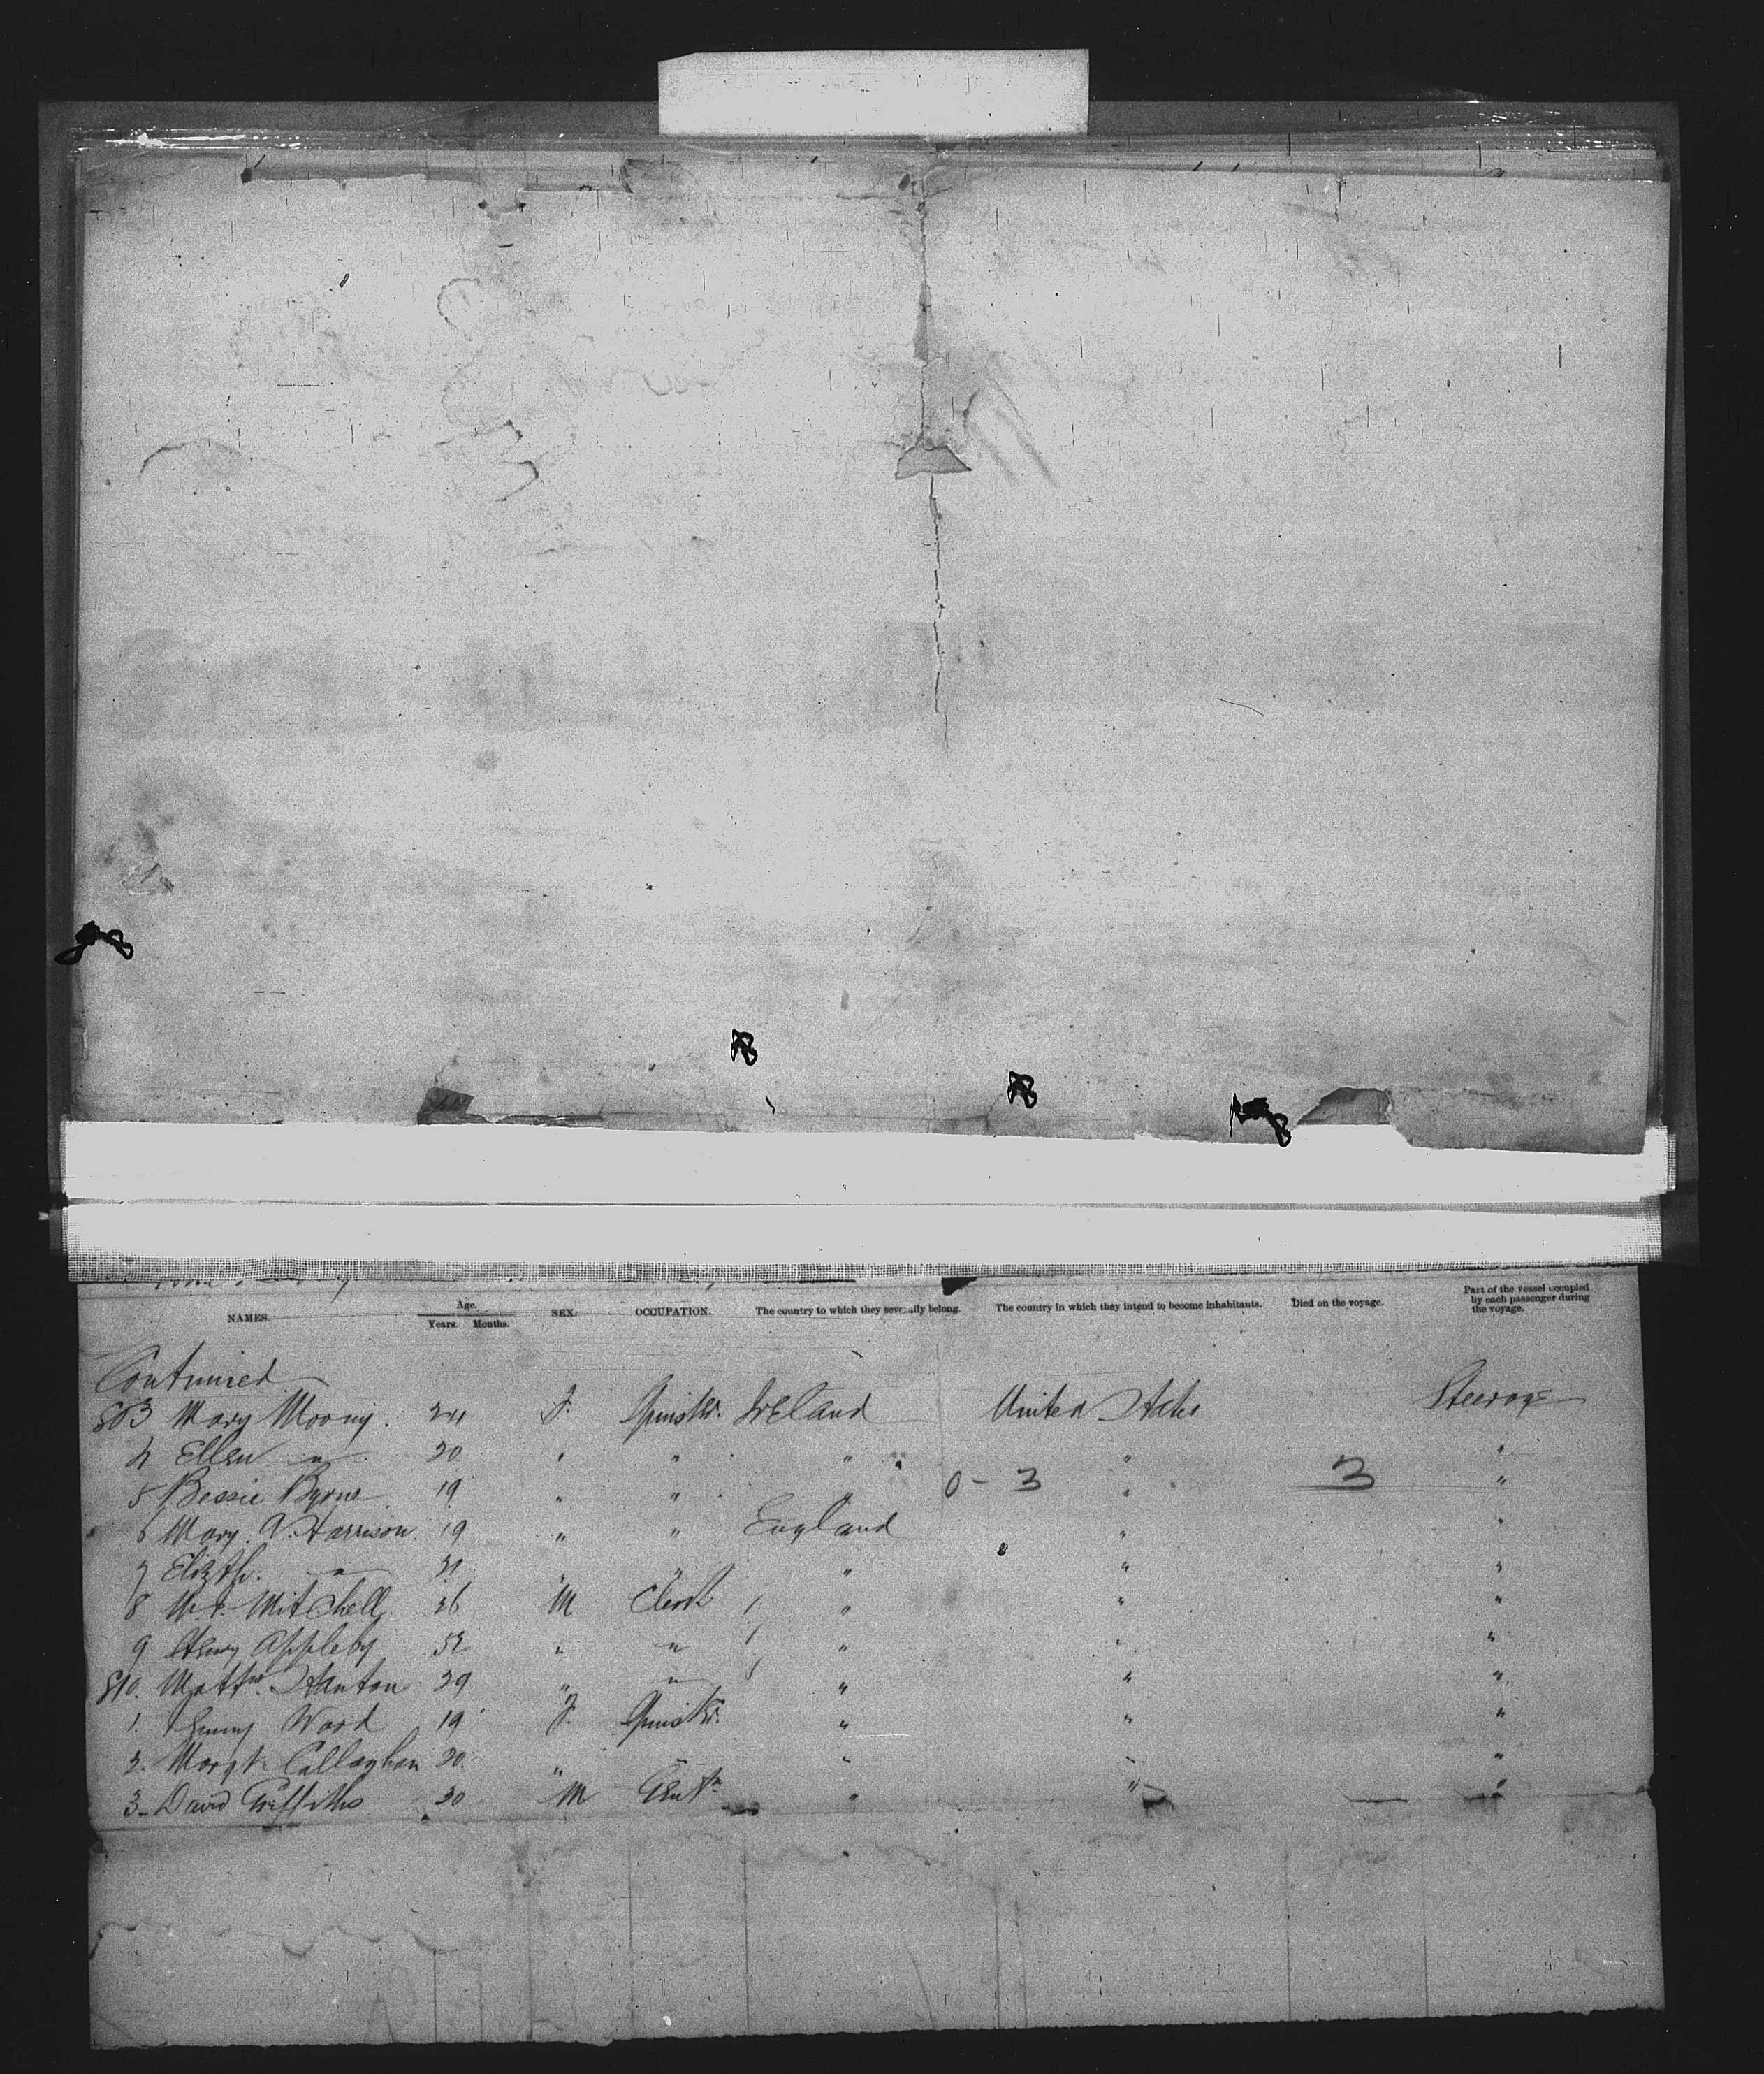 NAMES. Age. Years. Months. SEX. OCCUPATION. The country to which they severally belong. The country in which they intend to become inhabitants. Died on the voyage. Part of the vessel occupied by each passenger during the voyage.
Continued
803 Mary Moony. 24 F. Spinstr. Ireland United States Steerage
4 Ellen " 20 " " " " "
5 Bessie Byrne 19 " " " 0-3 " 3 "
6 Mary. A. Harrison 19 " " England " "
7 Elizth. " 21 " " " " "
8 Mitchell 26 M Clerk " " "
9 Henry Appleby 52 " " " " "
810. Matthw. Stanton 29 " " " " "
1. Emmy Ward 19 F. Spinstr. " " "
2. Margt. Callaghan 20. " " " " "
3 David Griffiths 30 M Gentn " " "